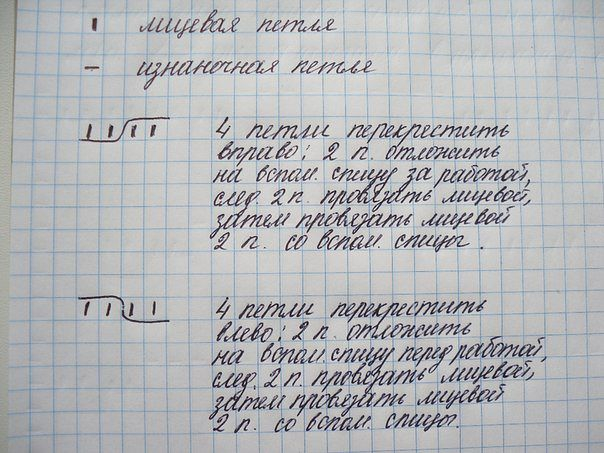 ı лицевая петля
– изнаночная петля
4 петли перекрестить
вправо: 2 п. отложить
на вспом. спицу за работой,
след. 2 п. провязать лицевой,
затем провязать лицевой
2 п. со вспом. спицы.
4 петли перекрестить
влево: 2 п. отложить
на вспом. спицу перед работой,
след. 2 п. провязать лицевой,
затем провязать лицевой
2 п. со вспом. спицы.